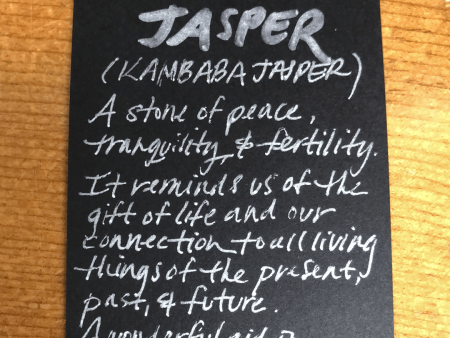 JASPER
(KAMBABA JASPER)
A stone of peace,
tranquility, & fertility.
It reminds us of the
gift of life and our
connection to all living
things of the present,
past, & future.
A wonderful aid